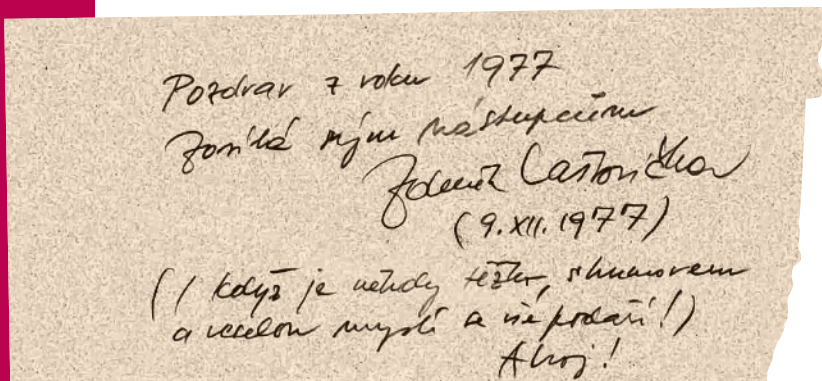 Pozdrav z roku 1977
posílá svým nástupcům
Zdeněk
(9.XII.1977)
(I když je někdy těžko, s humorem
a veselou myslí se vše podaří!)
Ahoj!